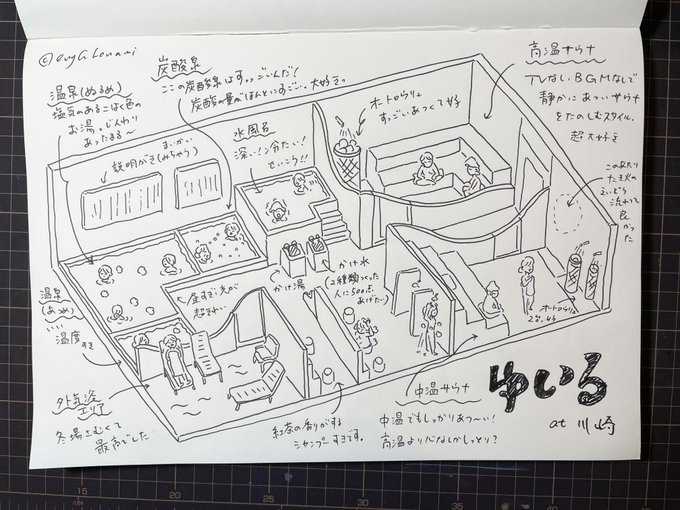 炭酸泉
ここの炭酸泉はすっごいんだ!
炭酸の量がほんとにすごい。大好き。
温泉(ぬるめ)
塩気のあるこはく色の
お湯。じんわり
あったまる〜
説明がき(みちゃう)
水風呂
深い!冷たい!
さいこう!!
オートロウリュ
すっごいあつくて好
高温サウナ
TVない、BGMなしで
静かにあついサウナ
をたのしむスタイル。
超大好き
このあたり
たき火の
流れてて
良かった
かけ湯
かけ水
(2種類つくった
人に500点
あげたい)
温泉
温度すき
外気浴
エリア
冬場さむくて
最高でした
紅茶の香りがする
シャンプーすきです。
中温サウナ
中温でもしっかりあつ〜い!
高温より心なしかしっとり?
オートロウリュ
ゆいる
at 川崎
15
20
25
30
35
40